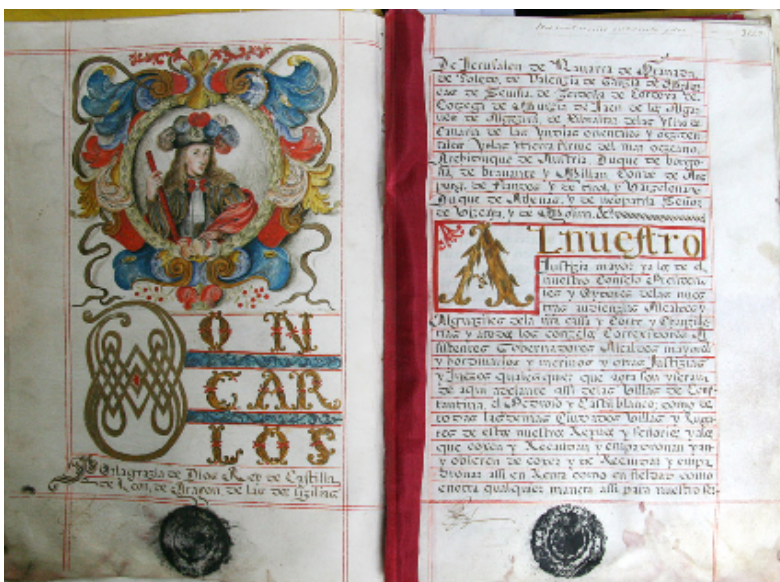 DON
CARLOS
Por la grazia de Dios Rey de Castilla
de Leon, de Aragon, de las dos Sizilias
De Jerusalen de Navarra de Granada
de Toledo, de Valenzia de Galizia de Mallor
cas de Sevilla de Zerdeña de Cordova de
Corzega de Murzia de Jaen de los Algar
ves de Algezira de Gibraltar delas Yslas de
Canaria de las Yndias orientales y oczident
tales Yslas ytierra firme del mar oczeano,
Archiduque de Austria Duque de borgo
ña, de bravante y Millan, Conde de
de Flandes y de tirol, y Varzelona
Duque de Athenas, y de neopatria Señor
de Vizcaya, y de Molina, &
Al nuestro
Justizia mayor ya los de el
nuestro Consejo Presiden
tes y Oydores delas nues
tras audienzias Alcaldes y
Alguaziles dela nra cassa y Corte y Chanzille
rias y atodos los conzejos Corregidores A
sistentes Gobernadores Alcaldes mayores
y hordinarios y merinos y otras Justizias
y Juezes qualesquier que aora son y seran
de aqui adelante assi delas Villas de Cons
tantina, el Pedroso y Castilblanco, como de
todas las demas Ciudades Villas y Luga
res de estos nuestros Reynos y señorios y alos
que cojen y Recaudan y empadronan
y ubieren de cojer y de Recaudar y empa
dronar assi en Renta como en fieldad como
enotra qualquier manera assi para nuestro